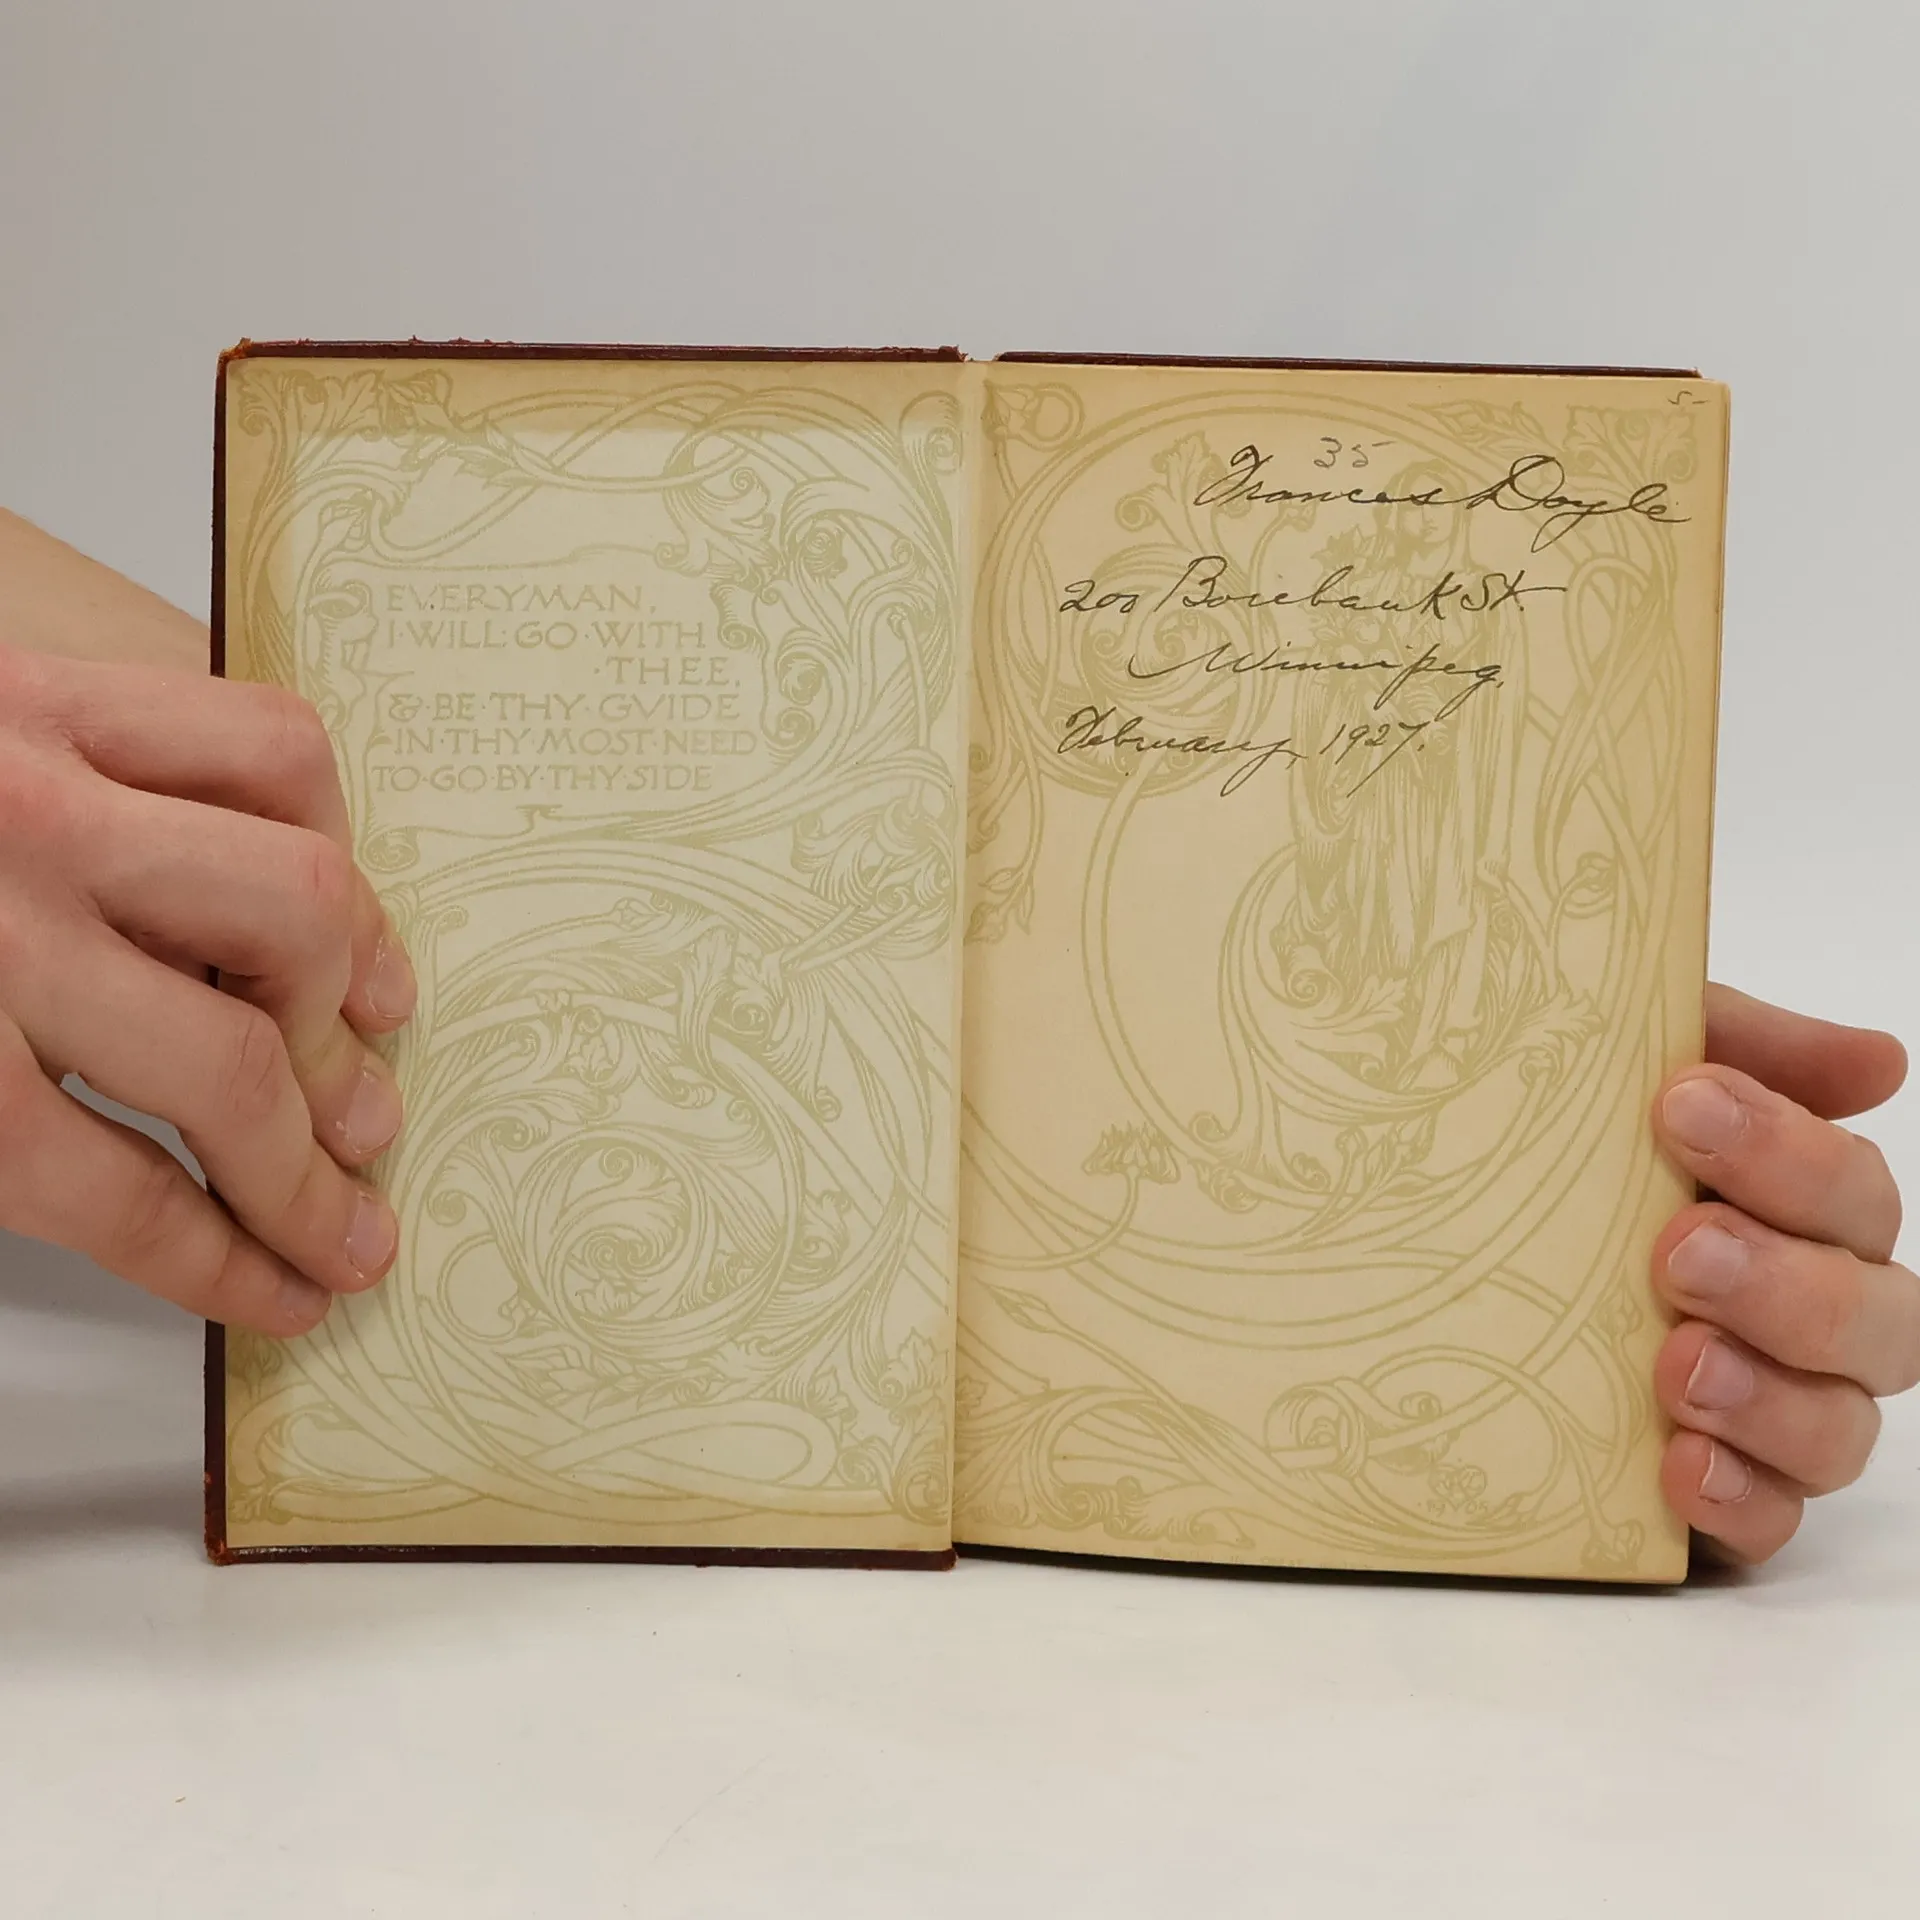 EVERYMAN,
I·WILL·GO·WITH
·THEE,
&·BE·THY·GVIDE
IN·THY·MOST·NEED
TO·GO·BY·THY·SIDE
5-
35
Frances Doyle
200 Borebank St.
Winnipeg,
February, 1927.